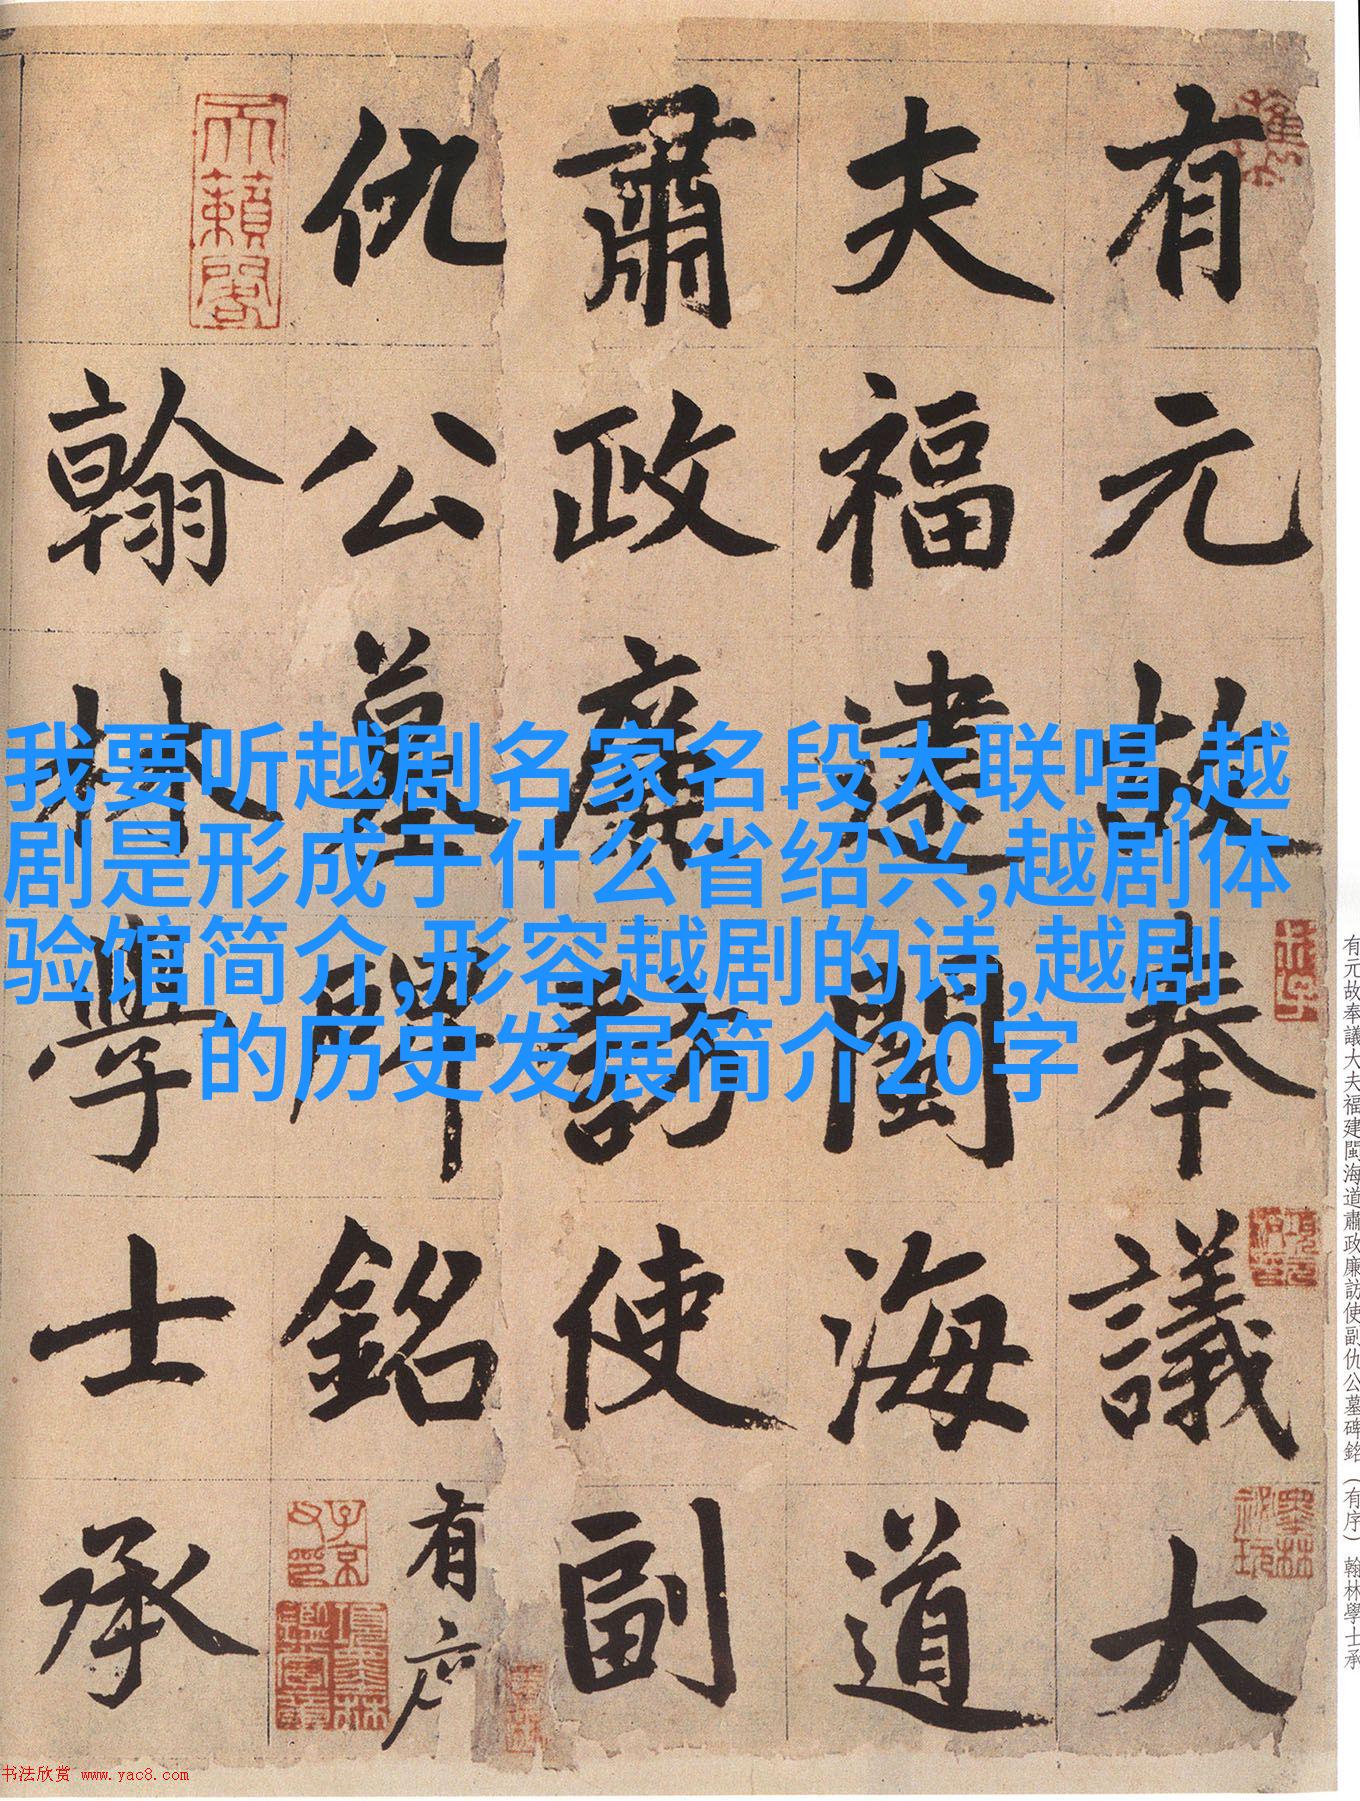 有元故奉議大
夫福建閩海道
肅政廉訪使副
仇公墓碑銘有序
翰林學士承
天籟閣
子京父印
項墨林鑑賞章
墨林祕玩
我要听越剧名家名段大联唱,越
剧是形成于什么省绍兴,越剧体
验馆简介,形容越剧的诗,越剧
的历史发展简介20字
有元故奉議大夫福建閩海道肅政廉訪使副仇公墓碑銘（有序）翰林學士承
书法欣赏 www.yac8.com